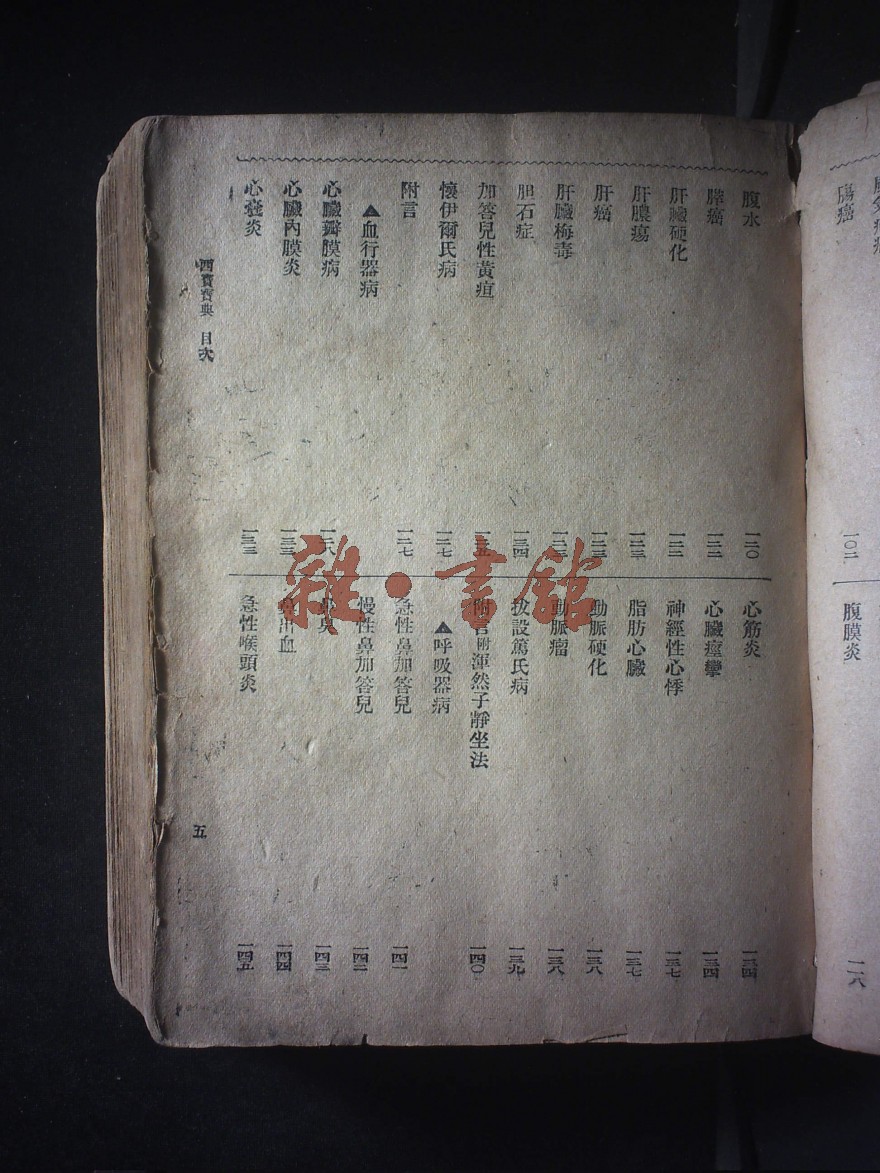 腹水 一二〇
膵癌 一二二
肝臟硬化 一二二
肝膿瘍 一二三
肝癌 一二三
肝臟梅毒 一二三
胆石症 一二四
加答兒性黃疸 一二五
懷伊爾氏病 一二七
附言 一二七
▲血行器病
心臟瓣膜病 一二八
心臟內膜炎 一三三
心囊炎 一三三
心筋炎 一三四
心臟痙攣 一三四
神經性心悸 一三七
脂肪心臟 一三七
動脈硬化 一三八
動脈瘤 一三八
拔設篤氏病 一三九
附言附渾然子靜坐法 一四〇
▲呼吸器病
急性鼻加答兒 一四一
慢性鼻加答兒 一四二
鼻臭 一四三
鼻出血 一四四
急性喉頭炎 一四五
西寶寶典 目次
五
腸癌 一〇二
腹膜炎 一一八
雜·書館